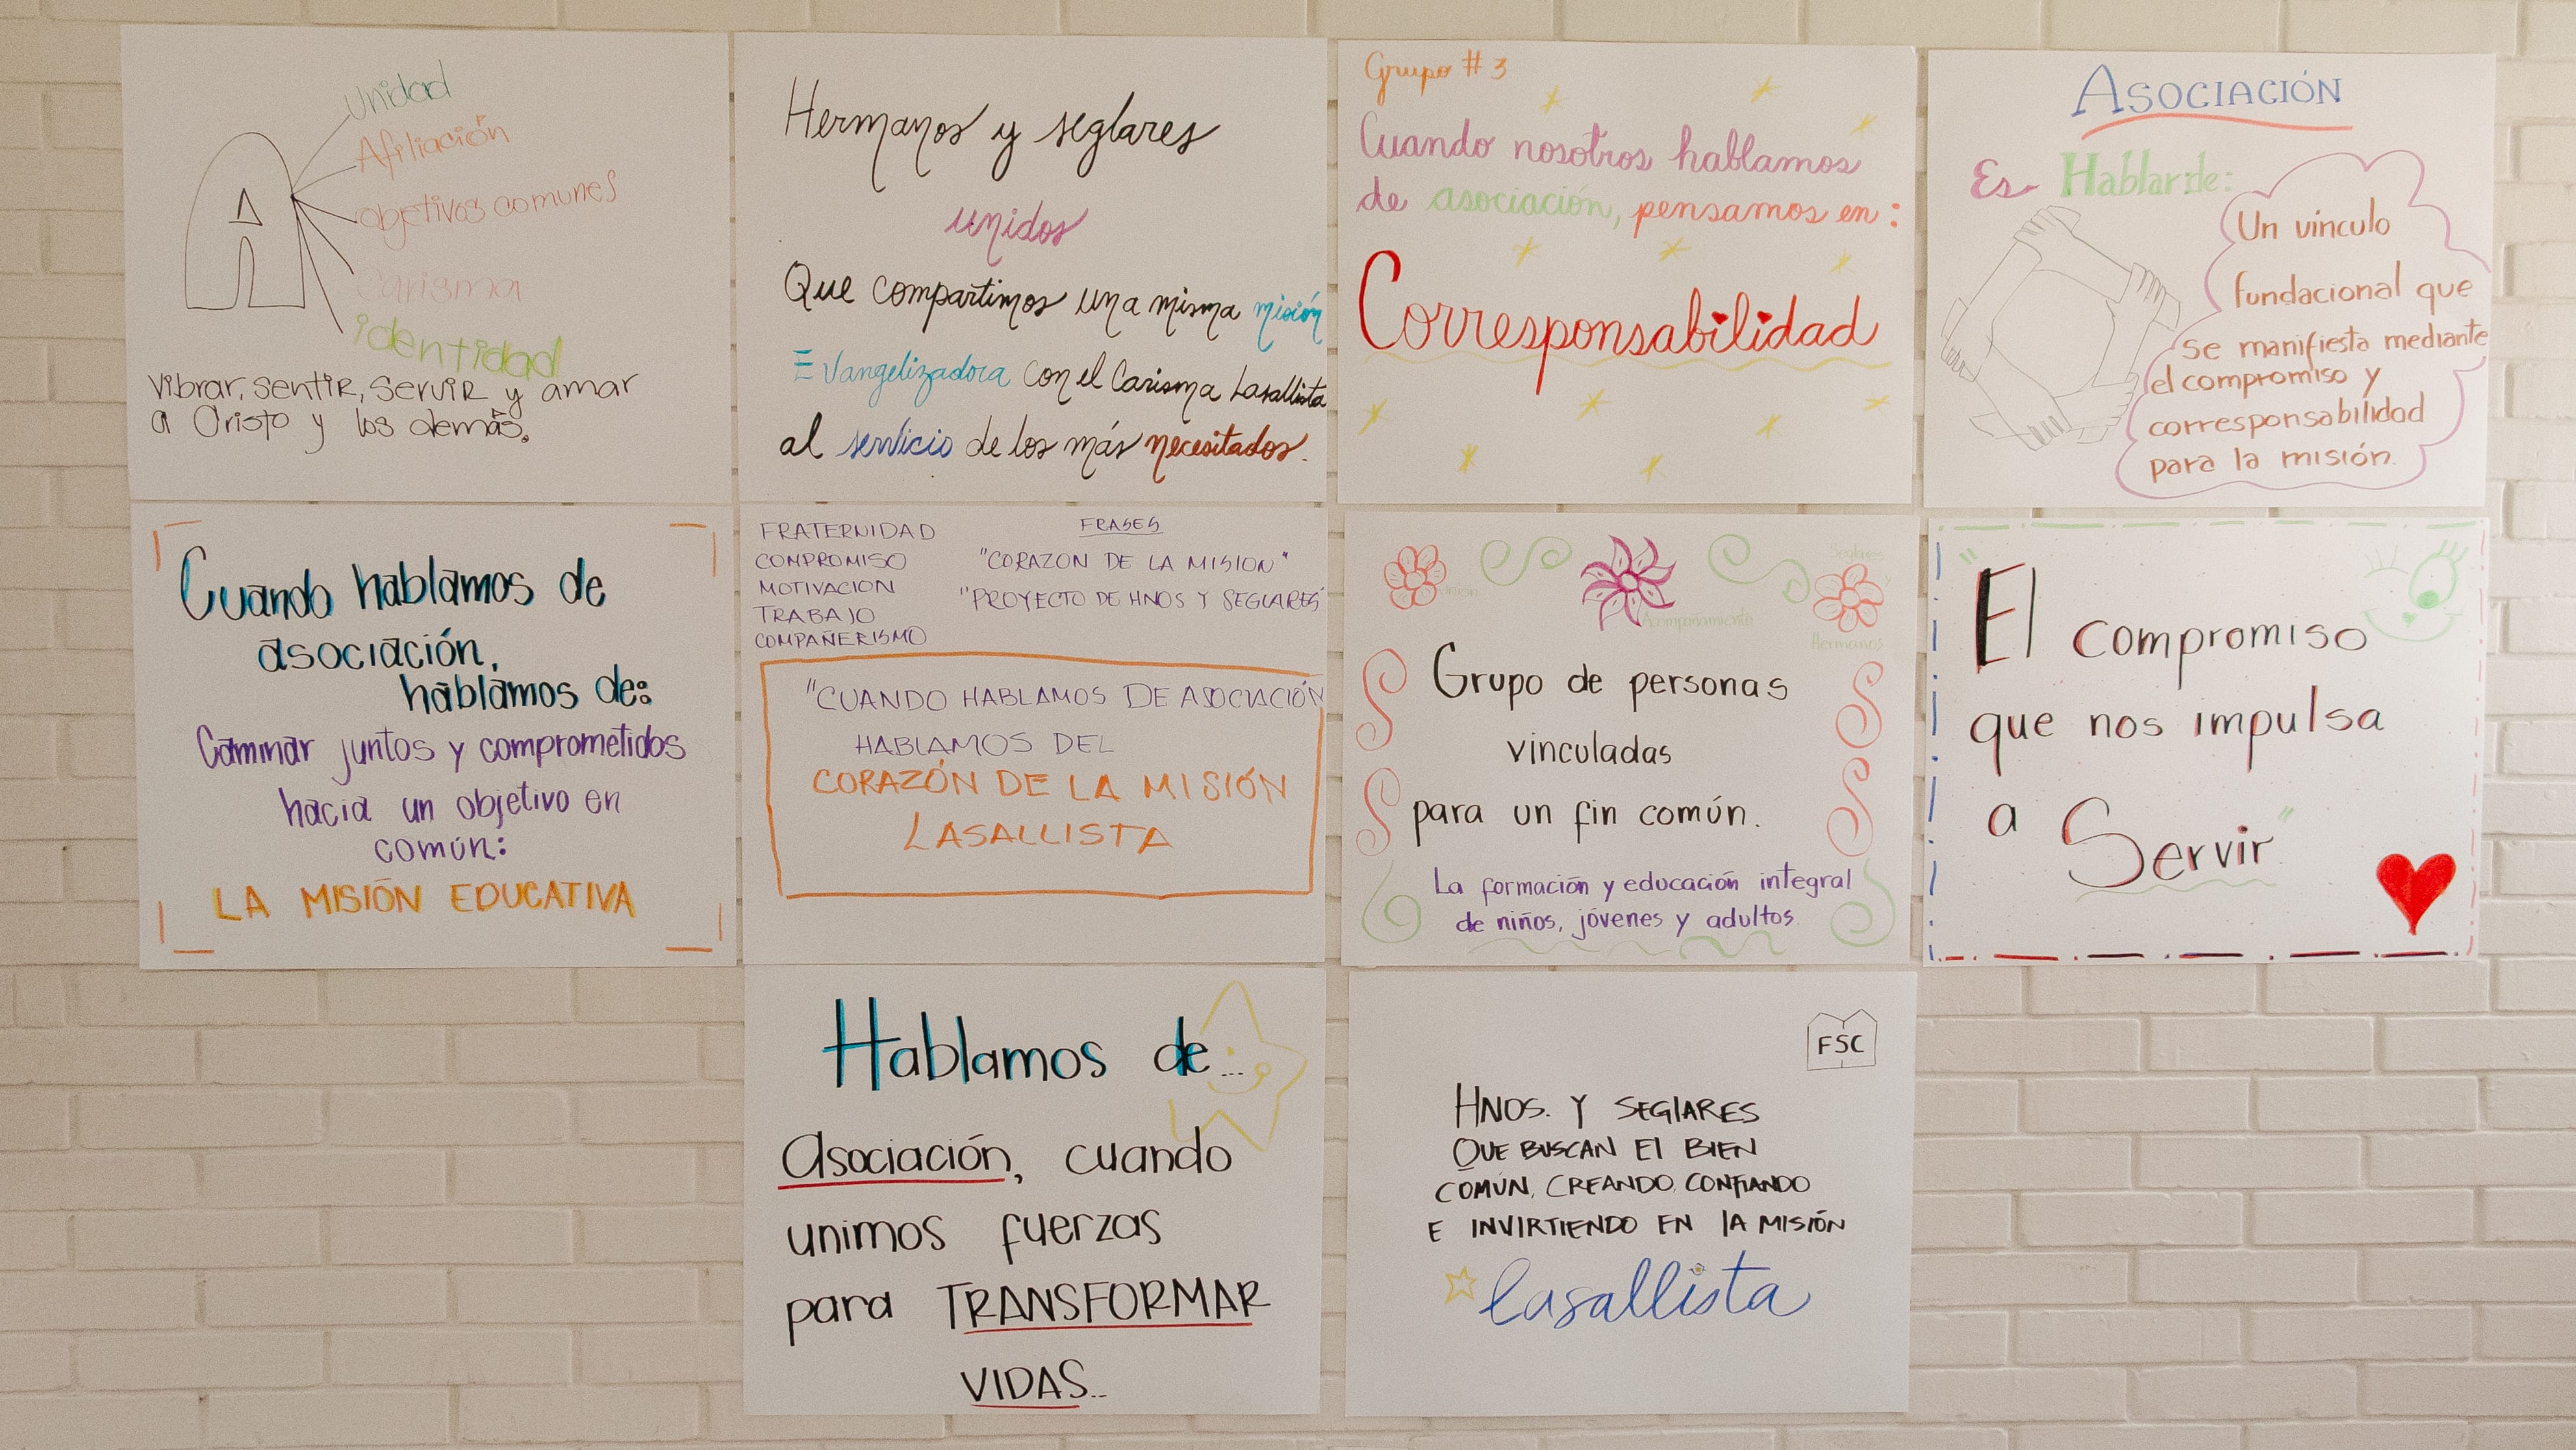 Unidad
Afiliación
objetivos comunes
Carisma
identidad
Vibrar, sentir, servir y amar
a Cristo y los demás.
Hermanos y seglares
unidos
Que compartimos una misma misión
Evangelizadora con el Carisma Lasallista
al servicio de los más necesitados.
Grupo # 3
Cuando nosotros hablamos
de asociación, pensamos en:
Corresponsabilidad
ASOCIACIÓN
Es Hablar de:
Un vínculo
fundacional que
se manifiesta mediante
el compromiso y
corresponsabilidad
para la misión.
Cuando hablamos de
asociación,
hablamos de:
Caminar juntos y comprometidos
hacia un objetivo en
común:
LA MISIÓN EDUCATIVA
FRATERNIDAD
COMPROMISO
MOTIVACION
TRABAJO
COMPAÑERISMO
FRASES
"CORAZON DE LA MISION"
"PROYECTO DE HNOS Y SEGLARES"
"CUANDO HABLAMOS DE ASOCIACIÓN
HABLAMOS DEL
CORAZÓN DE LA MISIÓN
LASALLISTA
Unión
Acompañamiento
Seglares
Hermanos
Grupo de personas
vinculadas
para un fin común.
La formación y educación integral
de niños, jóvenes y adultos.
"El compromiso
que nos impulsa
a Servir"
Hablamos de...
Asociación, cuando
unimos fuerzas
para TRANSFORMAR
VIDAS...
FSC
HNOS. Y SEGLARES
QUE BUSCAN El BIEN
COMÚN, CREANDO, CONFIANDO
E INVIRTIENDO EN lA MISIÓN
lasallista